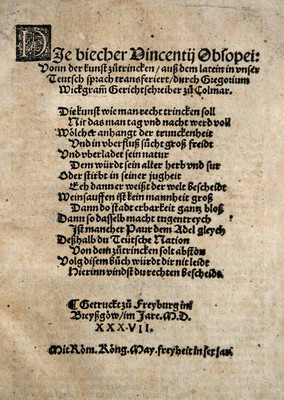 DIe biecher Vincentij Obsopei:
Vonn der kunst zůtrincken / auß dem latein in vnser
Teutsch sprach transferiert / durch Gregorium
Wickgram̃ Gerichtschreiber zů Colmar.
Die kunst wie man recht trincken soll
Nit das man tag vnd nacht werd voll
Wölcher anhangt der trunckenheit
Vnd in vberfluß sůcht groß freidt
Vnd vberladet sein natur
Dem würdt sein alter herb vnd sur
Oder stirbt in seiner jugheit
Eeh dann er weißt der welt bescheidt
Weinsauffen ist kein mannheit groß
Dann do stadt erbarkeit gantz bloß
Dann so dasselb macht tugentreych
Ist mancher Paur dem Adel gleych
Deßhalb du Teütsche Nation
Von dem zůtrincken solt abston
Volg disem bůch würdt dir nit leidt
Hierinn vindst du rechten bescheidt.
Getruckt zů Freyburg im
Breyßgöw / im Jare. M.D.
XXXVII.
Mit Röm. Küng. May. freyheit in